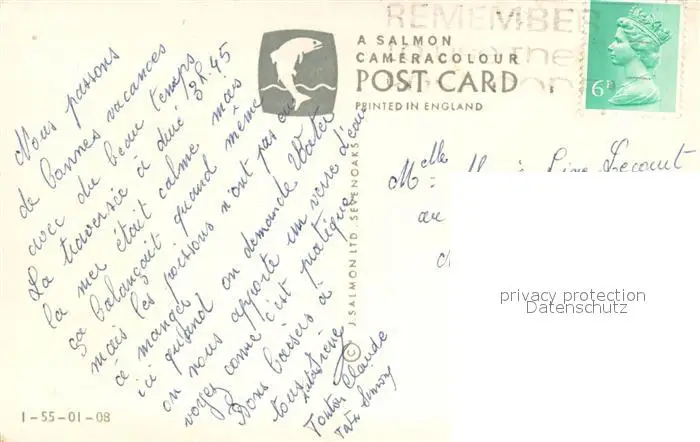 REMEMBER
A SALMON
CAMERACOLOUR
POST CARD
PRINTED IN ENGLAND
6P
Nous passons
de bonnes vacances
avec du beau temps
La traversée à duré 3h.45
la mer était calme mais
ça balançait quand même
mais les poissons n'ont pas eu
à manger
ici quand on demande Water
on nous apporte un verre d'eau
voyez comme c'est pratique
Bons baisers à
tous
Tonton Claude
Tata
© J. SALMON LTD. SEVENOAKS
Melle Line Lecourt
au
privacy protection
Datenschutz
1-55-01-08